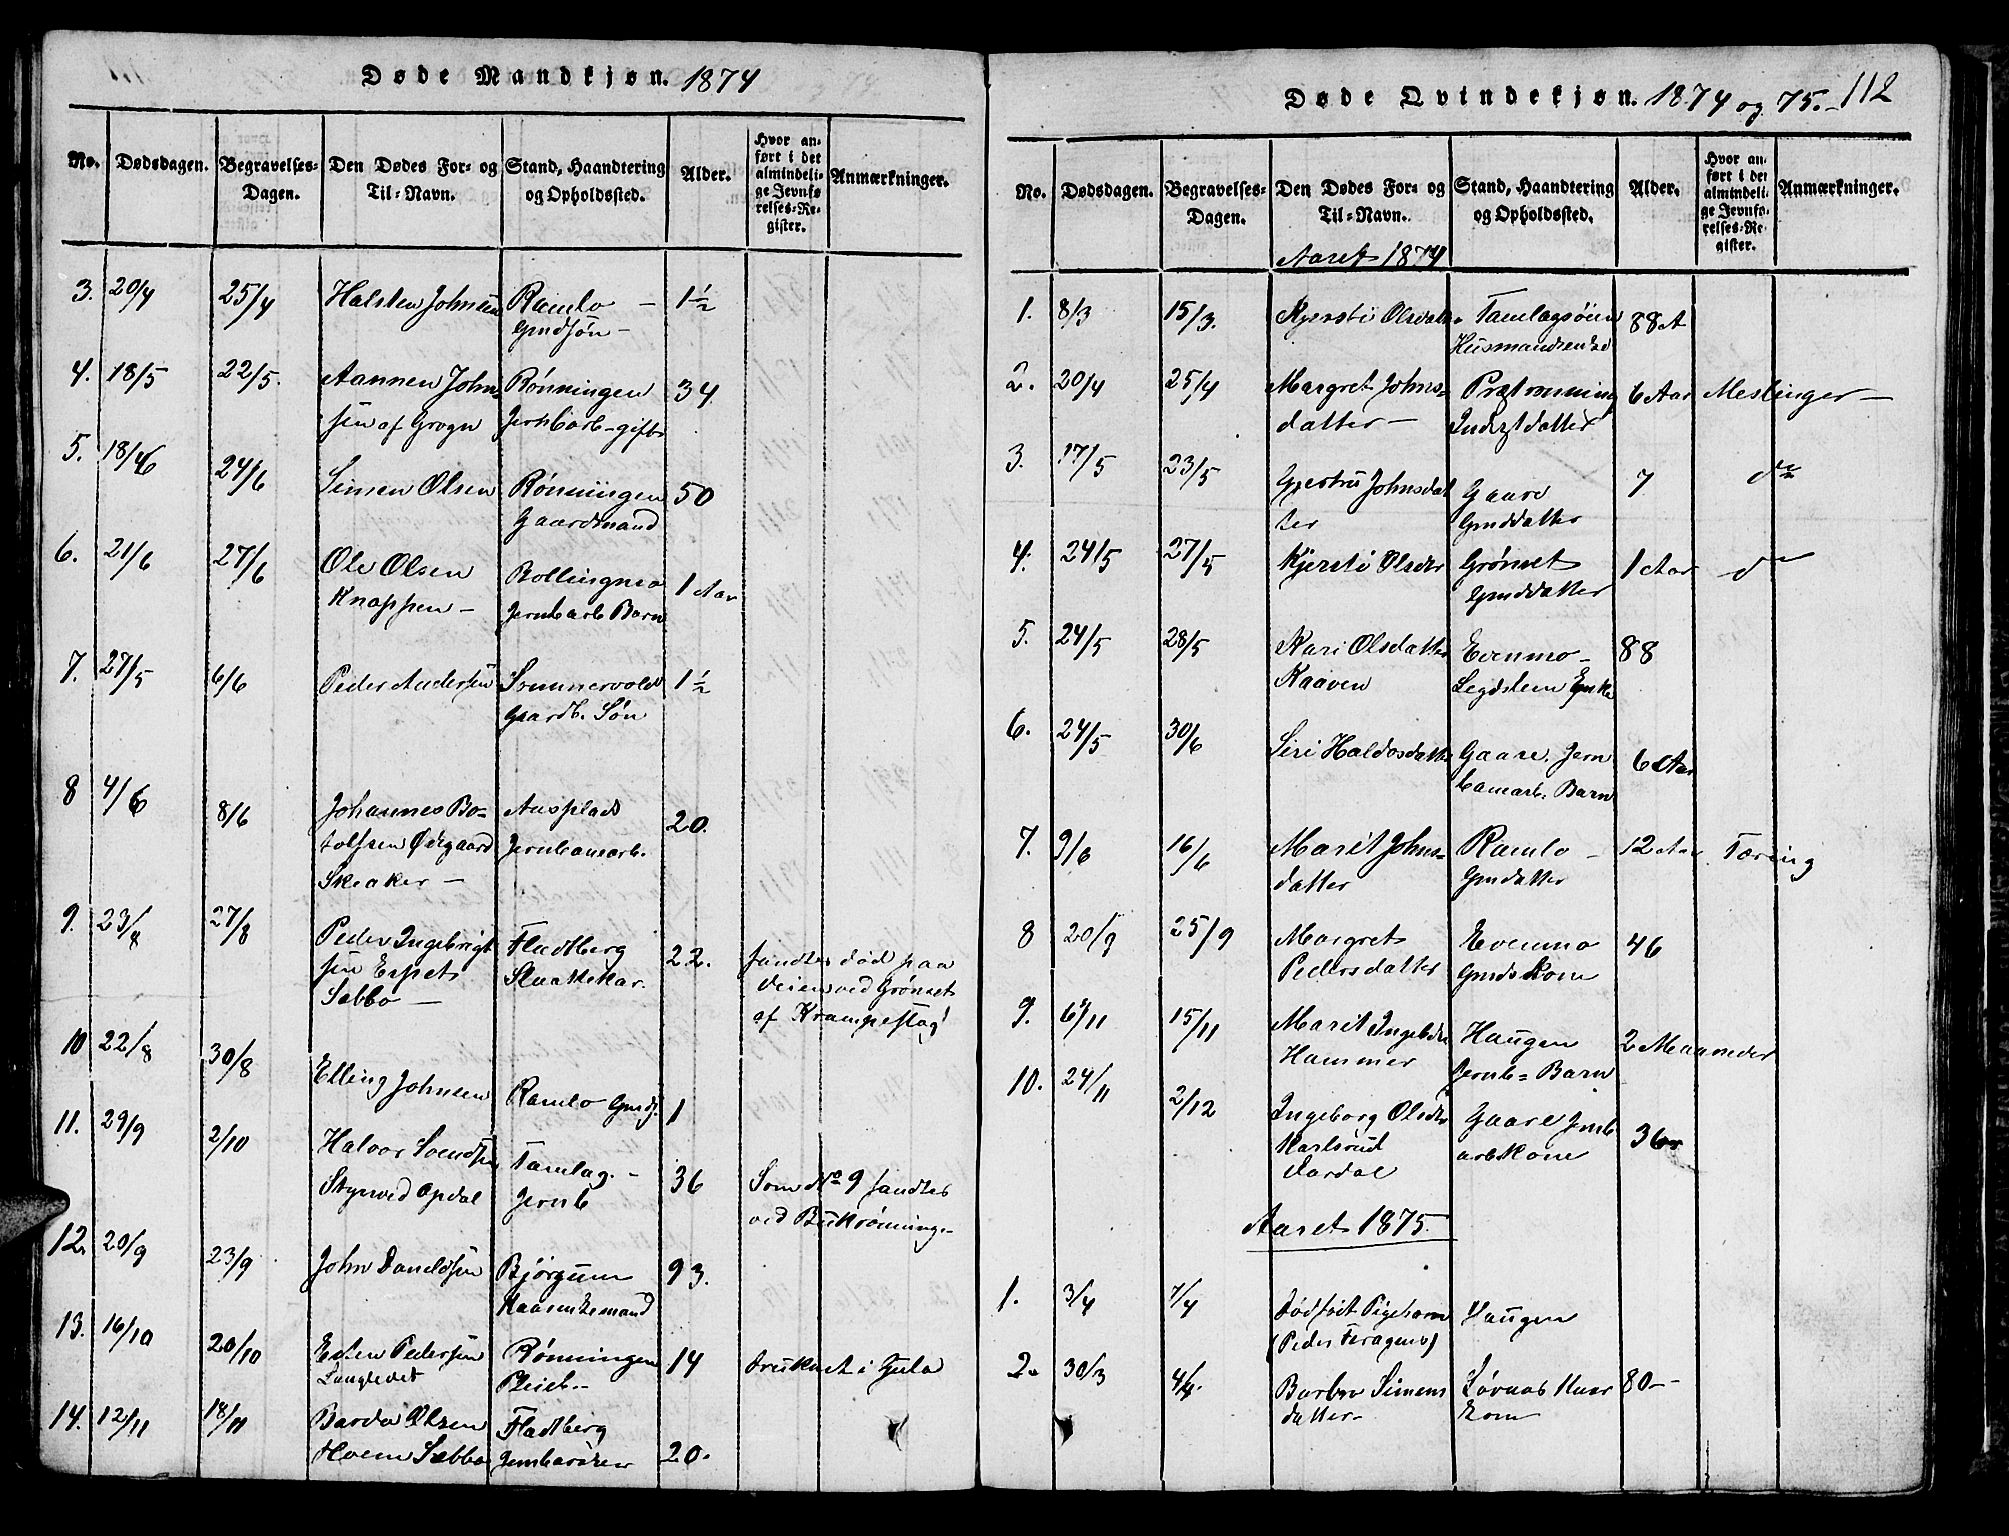 Døde Mandkjøn. 1874
No. Dødsdagen. Begravelses-Dagen. Den Dødes For- og Til-Navn. Stand, Haandtering og Opholdssted. Alder. Hvor anført i det almindelige Jevnførelses-Register. Anmærkninger.
3. 20/4 25/4 Halsten Johnsen Ramlo – 1½
Gmdsøn –
4. 18/5 22/5. Aannen John- Rønningen 34
sen af Grogn Jernbarb. gift
5. 18/6 24/6 Simen Olsen Rønningen 50
Gaardmand
6. 21/6 27/6 Ole Olsen 1 Aar
Knoppen – Jernbarb Barn
7. 27/5 6/6 Peder Andersen 1½
Gaardb. Søn
8 4/6 8/6 Johannes Bo- Ausplads 20.
tolfsen Ødegaard Jernbanearb.
Skeaker –
9. 23/8 27/8 Peder Ingebrigt Fladtberg 22. fandtes død paa
sen Espet Slaattekar. Veien ved Grønset
Sæbbo – af Krampeslag
10 22/8 30/8 Elling Johnsen Ramlo Gmds. 1
11. 29/9 2/10 Halvor Svendsen Tamlag. – 36 Som No 9 fandtes
Opdal Jernb ved Bukrønninge-
12. 20/9 23/9 John Danelsen Bjørgum 93.
Kaarenkemand
13. 16/10 20/10 Esten Pedersen Rønningen 14 druknet i Gula
Langledet
14. 12/11 18/11 Bardo Olsen Fladtberg 20.
Hoem Sæbbo
Døde Qvindekjøn. 1874 og 75. 112
No. Dødsdagen. Begravelses-Dagen. Den Dødes For- og Til-Navn. Stand, Haandtering og Opholdssted. Alder. Hvor anført i det almindelige Jevnførelses-Register. Anmærkninger.
Aaret 1874
1. 8/3 15/3. Kjersti Olsdatr. Tamlagsøien 88 A
Husmandsenke
2. 20/4 25/4 Margret Johns- Prætrønning 6 Aar Meslinger –
datter – Inderstdatter
3. 17/5 23/5 Gjertru Johnsdat Gaare 7 do
ter Gmddatter
4. 24/5 27/5 Kjersti Olsdtr Grønset 1 Aar do
Gmddatter
5. 24/5 28/5 Kari Olsdatter Evenmo – 88
Kaaven Legdslem Enke
6. 24/5 30/6 Siri Haldosdatter Gaare. Jern 6 Aar
banearb. Barn
7. 9/6 16/6 Marit Johns- Ramlo – 12 Aar Tæring
datter Gmdatter
8 20/9 25/9 Margret Evenmo 46
Pedersdatter Gmds Kone
9. 6/11 15/11 Marit Ingebdtr Haugen 2 Maaneder
Hammer Jernb= Barn
10. 24/11 2/12 Ingeborg Olsdtr Gaare Jernb 36
Karlsrud arb Kone
Aardal
Aaret 1875.
1. 3/4 7/4 Dødfødt Pigebarn Haugen
(Peder Feragens)
2. 30/3 4/4. Barbro Simens 80 –
datter –